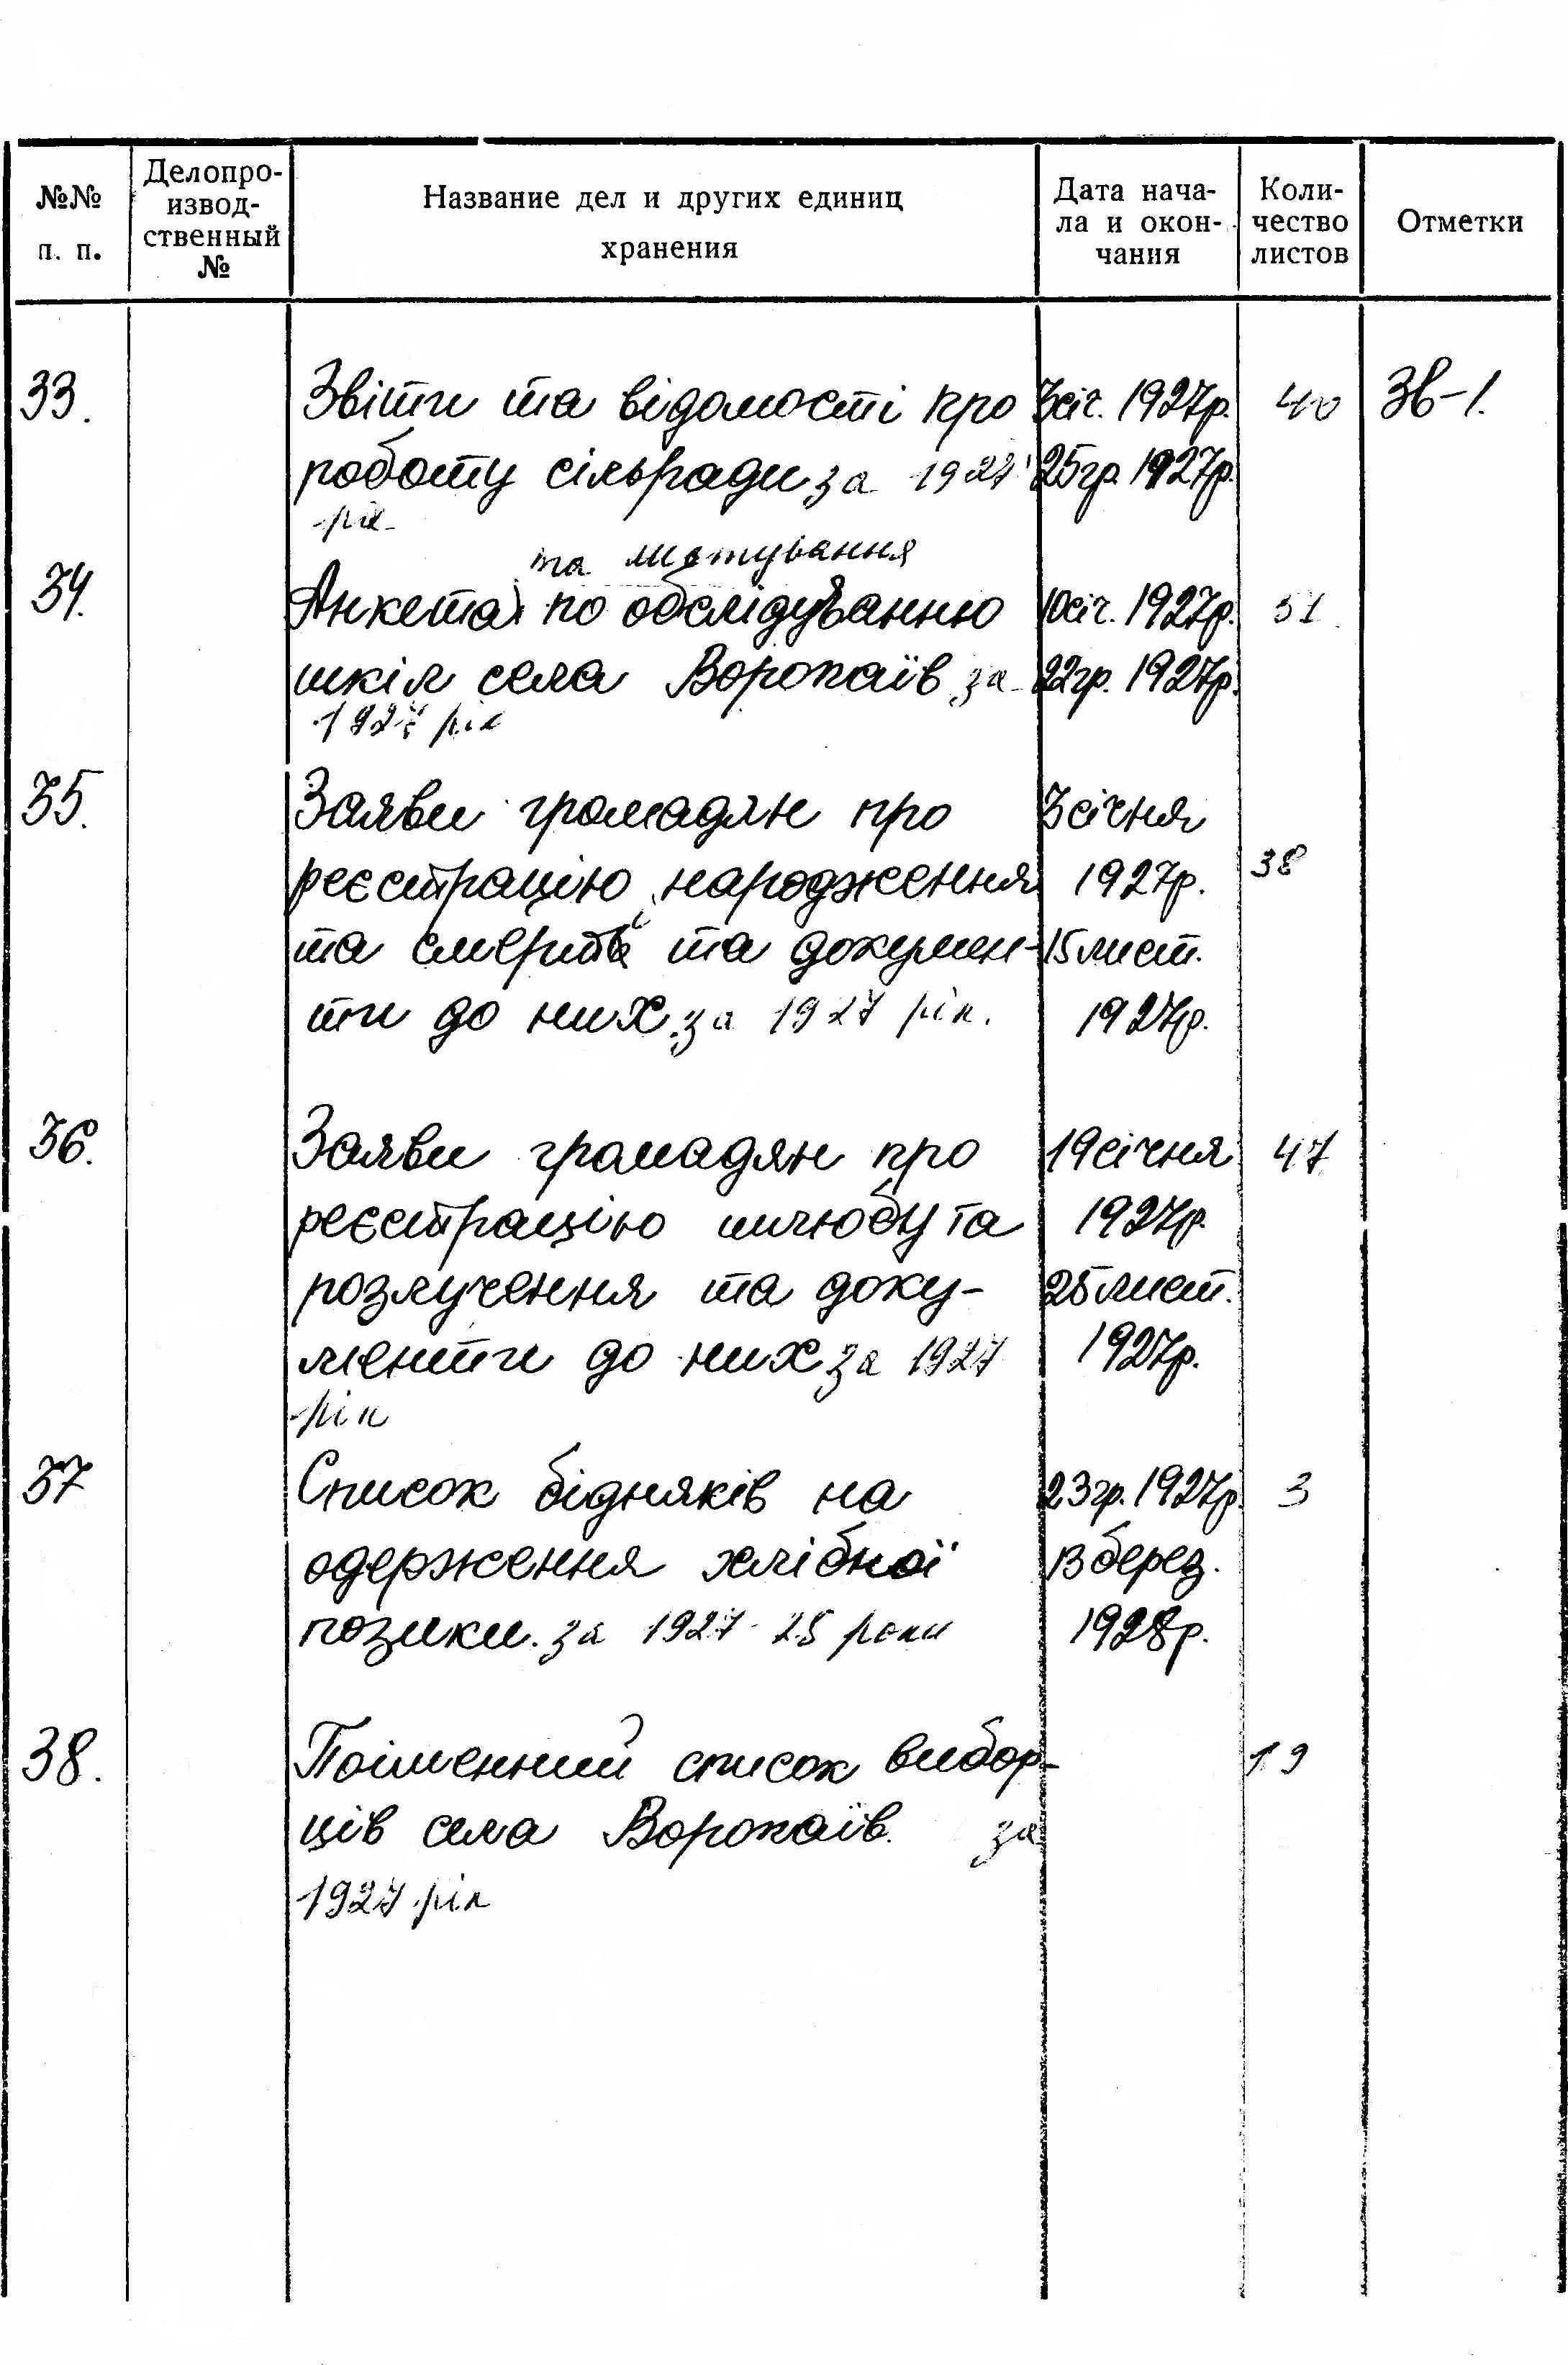 №№ п. п.
Делопроизвод-ственный №
Название дел и других единиц хранения
Дата нача-ла и окон-чания
Коли-чество листов
Отметки
33. Звіти та відомості про 3 січ. 1927р. 40 Зв-1.
роботу сільради за 1927 25 гр. 1927р.
рік
та листування
34. Анкета по обслідуванню 10 січ. 1927р. 51
шкіл села Воропаїв за 22 гр. 1927р.
1927 рік
35. Заяви громадян про 3 січня
реєстрацію народження 1927р. 38
та смерті та докумен- 15 лист.
ти до них за 1927 рік. 1927р.
36. Заяви громадян про 19 січня 47
реєстрацію шлюбу та 1927р.
розлучення та доку- 25 лист.
менти до них за 1927 1927р.
рік
37 Список бідняків на 23 гр. 1927р. 3
одержання хлібної 13 берез.
позики. за 1927-28 роки 1928р.
38. Поіменний список вибор- 19
ців села Воропаїв. за
1927 рік